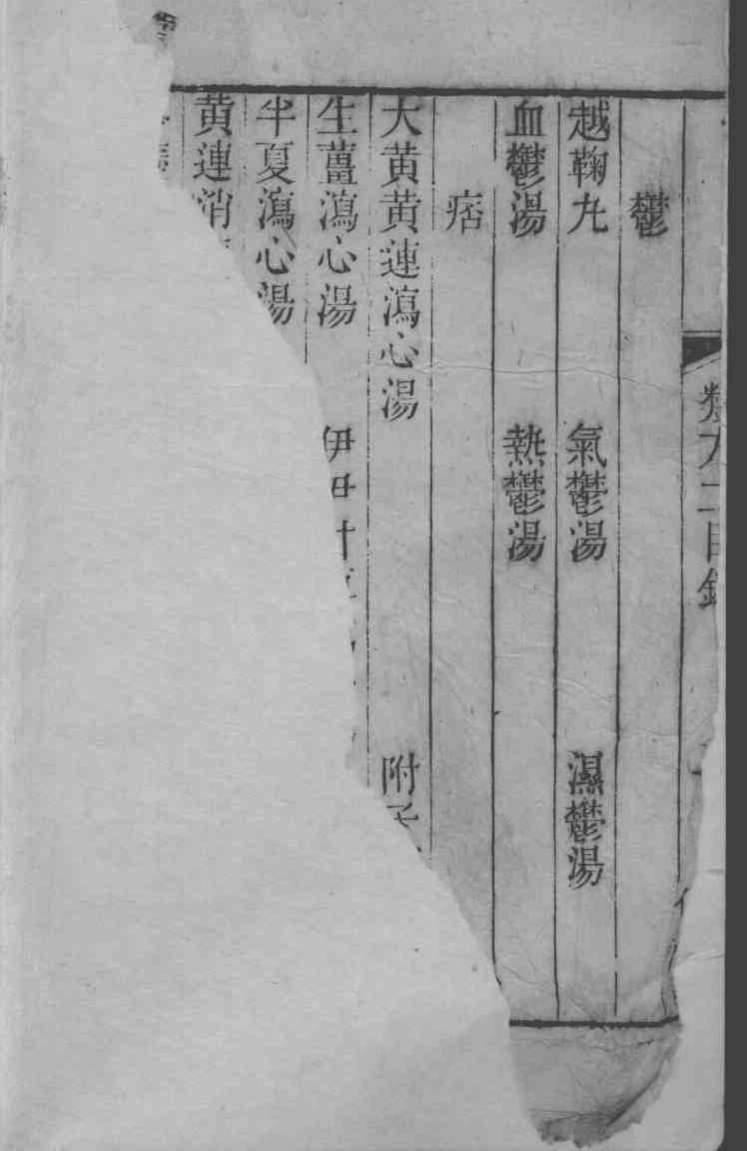 類方二目錄
鬱
越鞠丸 氣鬱湯 濕鬱湯
血鬱湯 熱鬱湯
痞
大黃黃連瀉心湯 附子
生薑瀉心湯 伊尹甘
半夏瀉心湯
黃連消